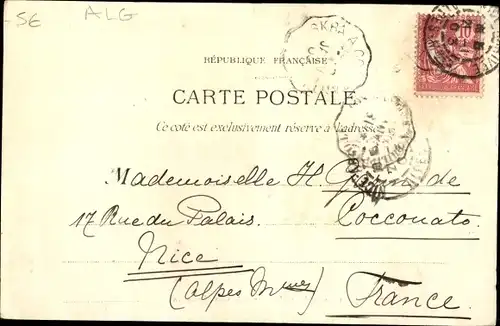 -SE ALG
RÉPUBLIQUE FRANÇAISE
10
CARTE POSTALE
Ce côté est exclusivement réservé à l'adresse
Mademoiselle H. de
17 Rue du Palais. Cocconato
Nice
(Alpes Mmes) France.